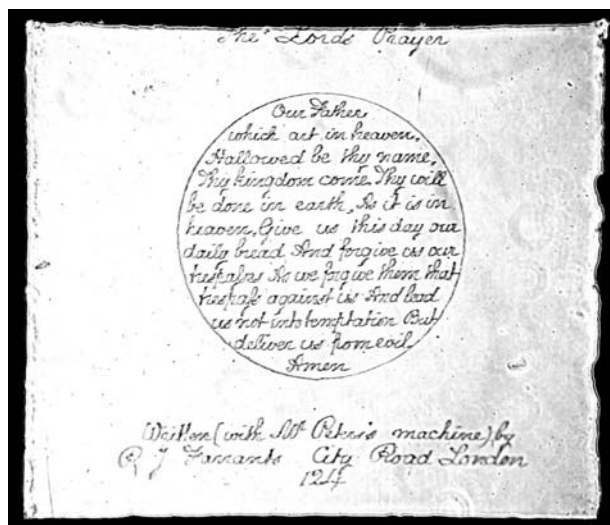 The Lord's Prayer
Our Father
which art in heaven,
Hallowed be thy name,
Thy kingdom come, Thy will
be done in earth, As it is in
heaven, Give us this day our
daily bread And forgive us our
trespaſses As we forgive them that
trespaſs against us And lead
us not into temptation But
deliver us from evil
Amen
Written (with Mr Peters's machine) by
R J Farrants City Road London
124